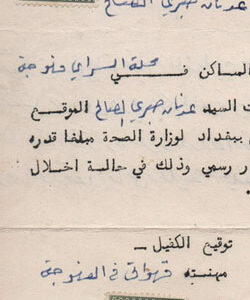 عدنان صبري الصالح
الساكن فـــي محلة السراي فلوجة
ت السيد عدنان صبري الصالح الموقع
ببغداد لوزارة الصحة مبلغا قدره
ار رسمي وذلك في حالة اخلال
توقيع الكفيل ــ
مهنته قهواتي في الفلوجة